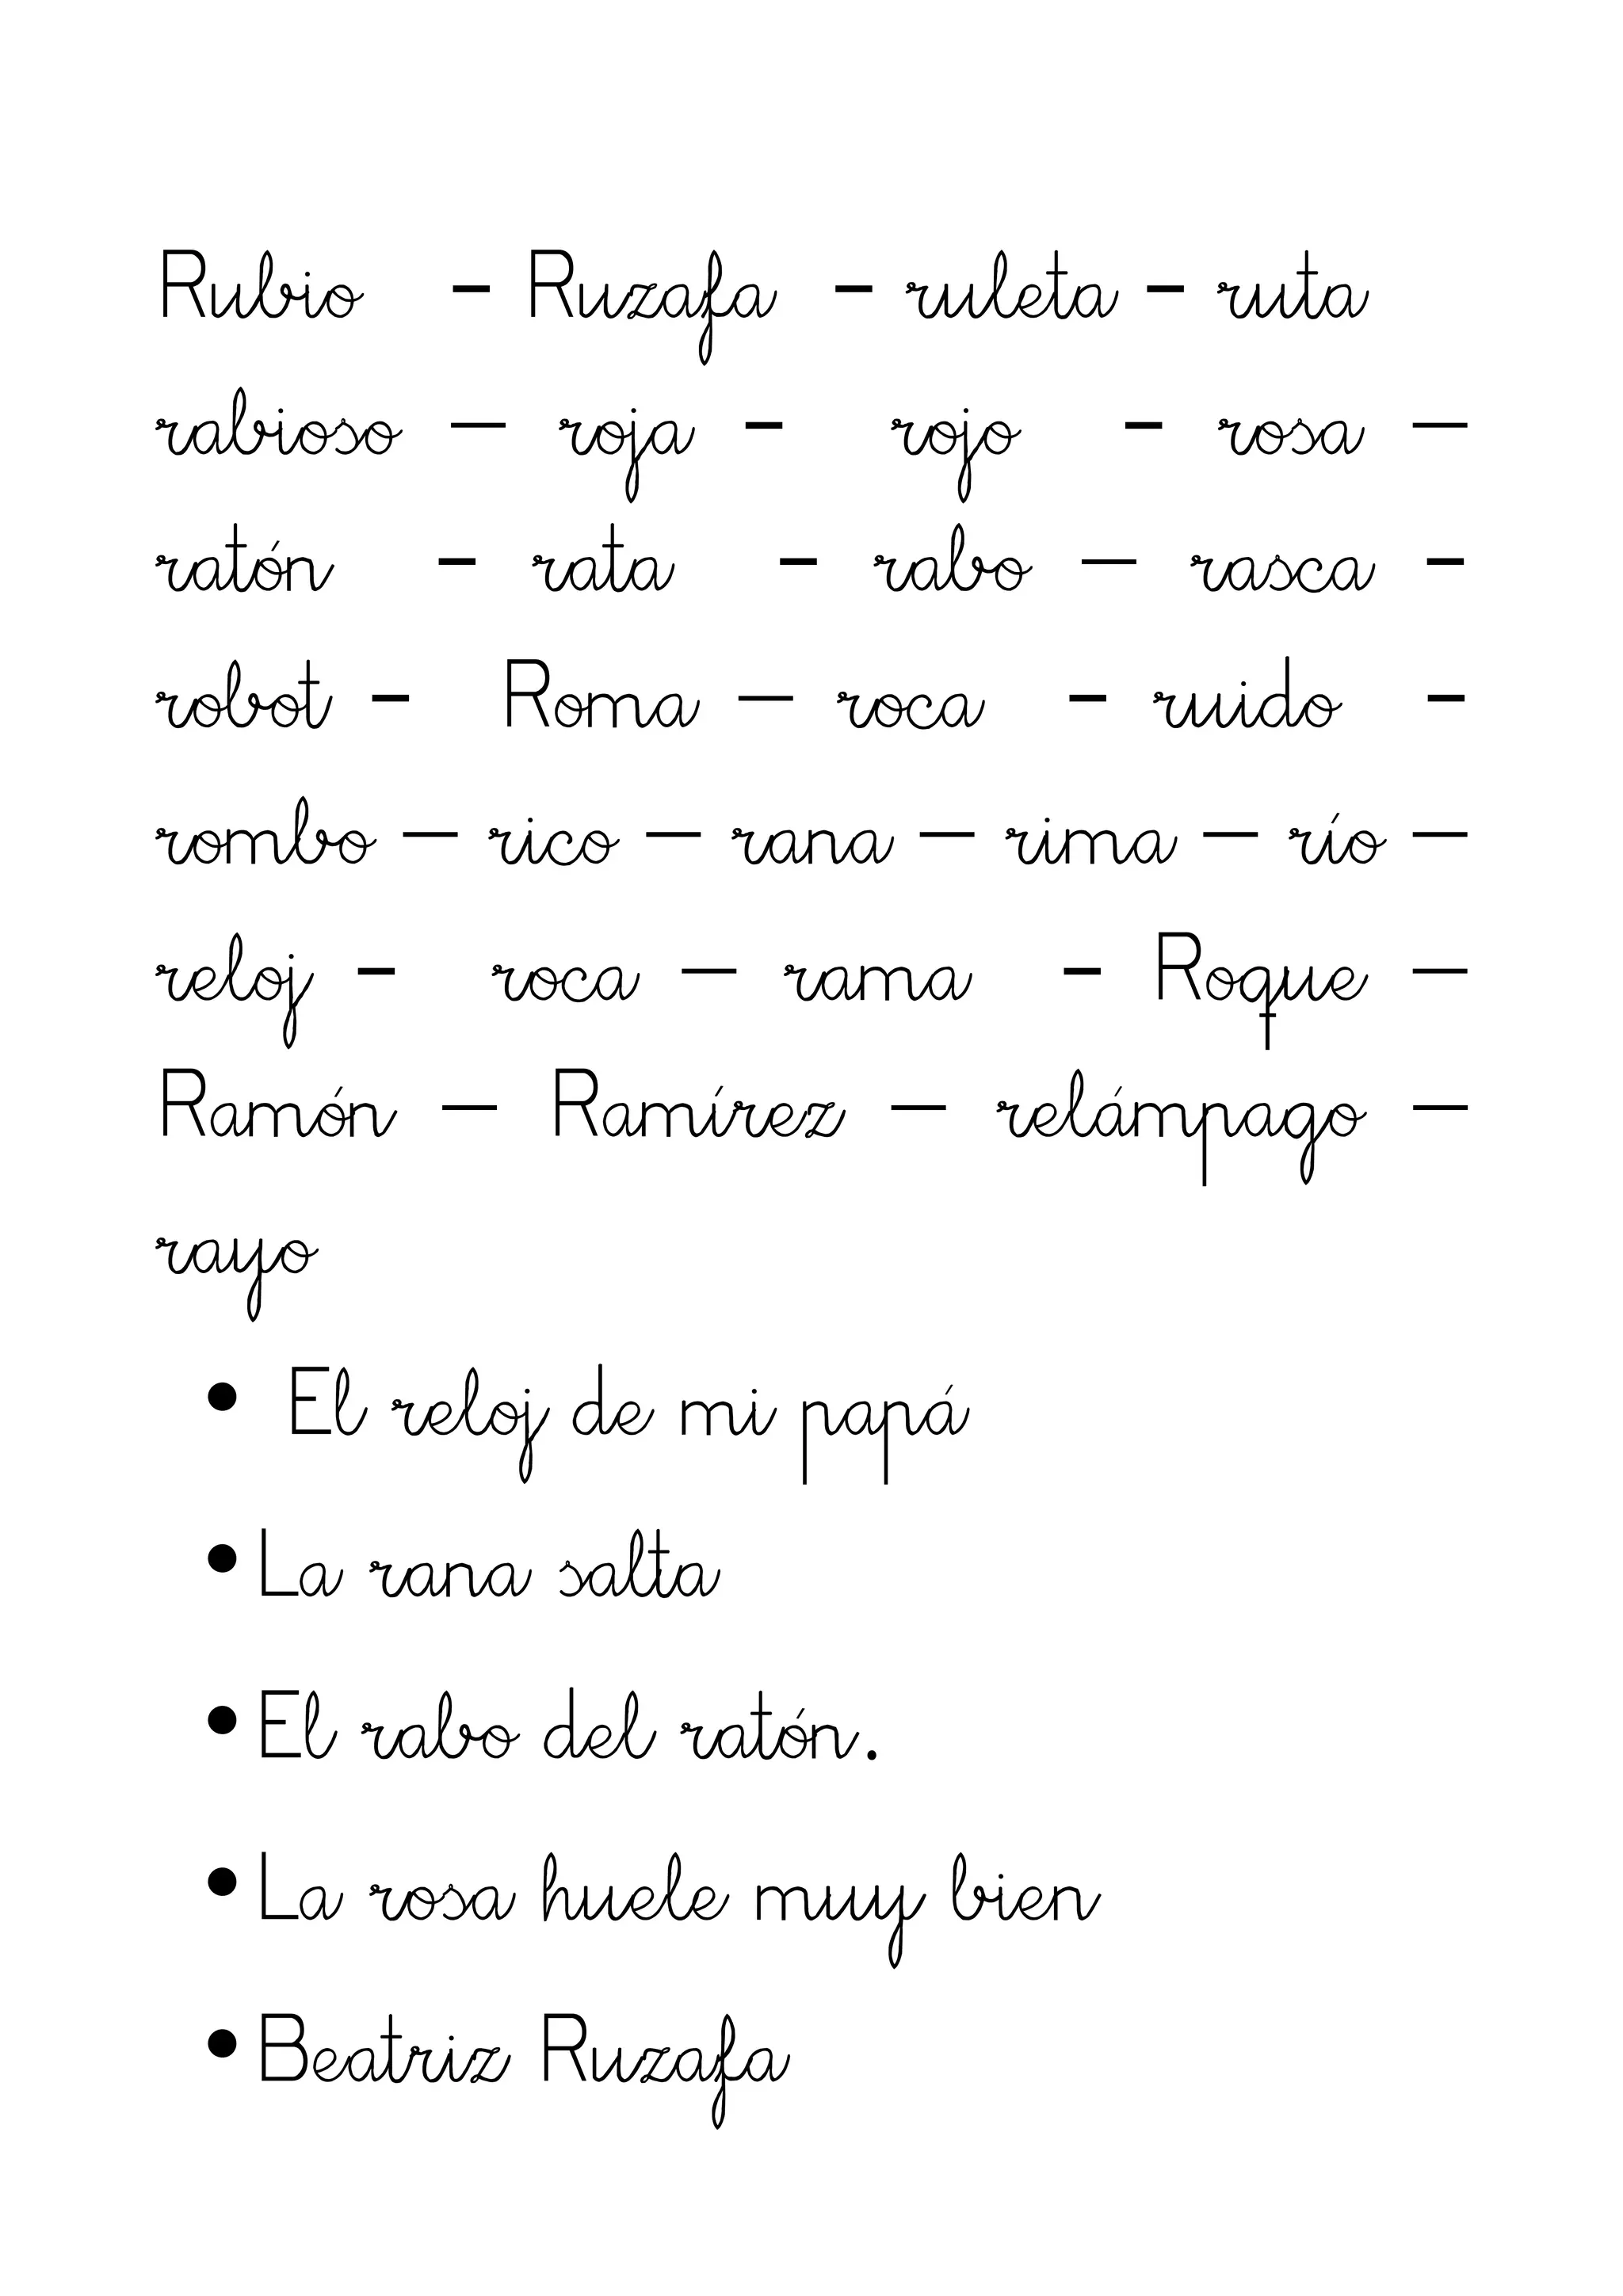 Rubio - Ruzafa - ruleta - ruta
rabioso – roja - rojo - rosa –
ratón - rata - rabo – rasca -
robot - Roma – roca - ruido -
rombo – rico – rana – rima – río –
reloj - roca – rama - Roque –
Ramón – Ramírez – relámpago –
rayo
• El reloj de mi papá
• La rana salta
• El rabo del ratón.
• La rosa huele muy bien
• Beatriz Ruzafa